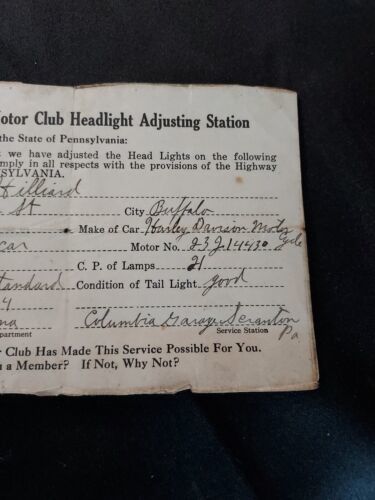 otor Club Headlight Adjusting Station
the State of Pennsylvania:
we have adjusted the Head Lights on the following
mply in all respects with the provisions of the Highway
SYLVANIA.
Hilliard
St City Buffalo
Make of Car Harley Davison Motor Cycle
car Motor No. 23J14430
C. P. of Lamps 21
tandard Condition of Tail Light good
4
na Columbia Garage Scranton Pa
partment Service Station
r Club Has Made This Service Possible For You.
u a Member? If Not, Why Not?